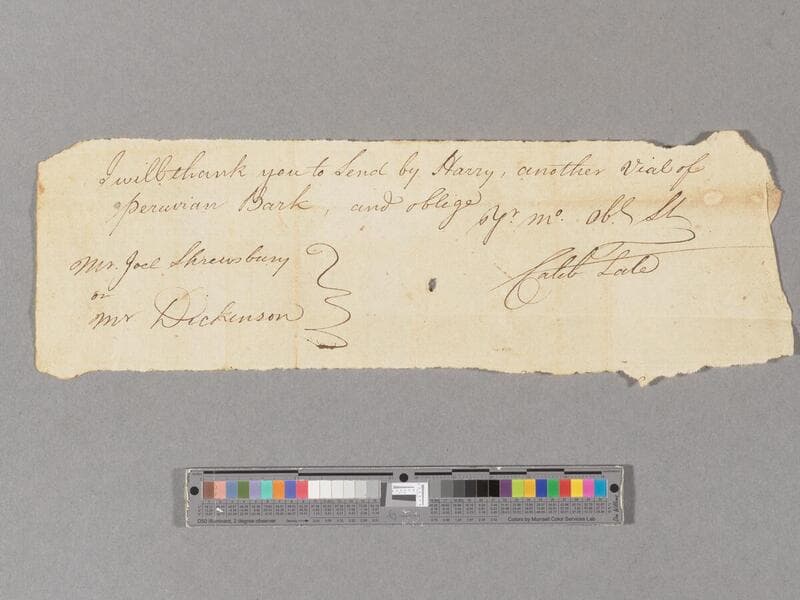 I will thank you to Send by Harry, another Vial of
Peruvian Bark, and oblige
Yr. mo. Obt. St
Mr. Joel Shrewsbury
or
Mr Dickenson
Caleb Tate
DSO Illuminant, 2 degree observer
Colors by Munsell Color Services Lab